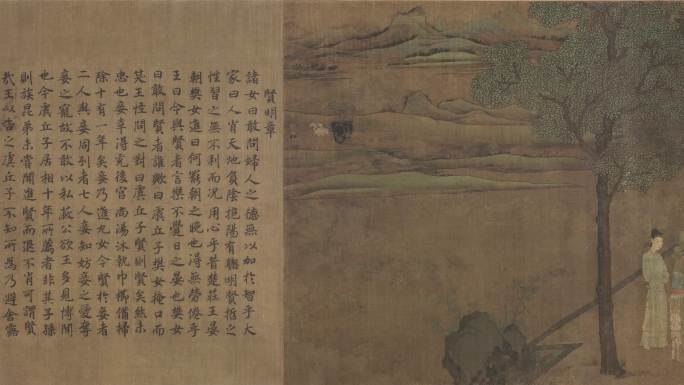 賢明章
諸女曰敢問婦人之德無以加於智乎大
家曰人肖天地負陰抱陽有聰明賢哲之
性習之無不利而況用心乎昔楚莊王晏
朝樊女進曰何罷朝之晚也得無勞倦乎
王曰今與賢者言樂不覺日之晏也樊女
曰敢問賢者誰歟曰虞丘子樊女掩口而
笑王怪問之對曰虞丘子賢則賢矣然未
忠也妾幸得充後宮尚湯沐執巾櫛備掃
除十有一年矣妾乃進九女今賢於妾者
二人與妾同列者七人妾知妨妾之愛奪
妾之寵故不敢以私蔽公欲王多見博聞
也今虞丘子居相十年所薦者非其子孫
則族昆弟未嘗聞進賢而退不肖可謂賢
哉王以告之虞丘子不知所為乃避舍露